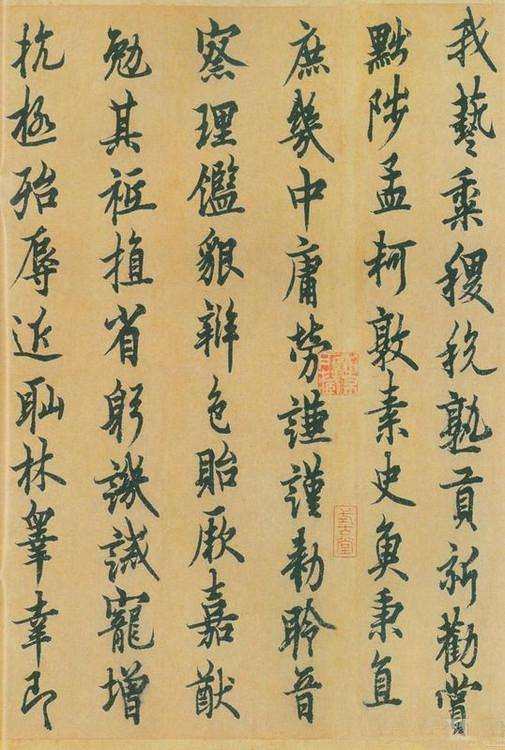 我藝黍稷稅熟貢新勸賞
黜陟孟軻敦素史魚秉直
庶幾中庸勞謙謹勑聆音
察理鑑貌辨色貽厥嘉猷
勉其祗植省躬譏誡寵增
抗極殆辱近耻林皋幸即